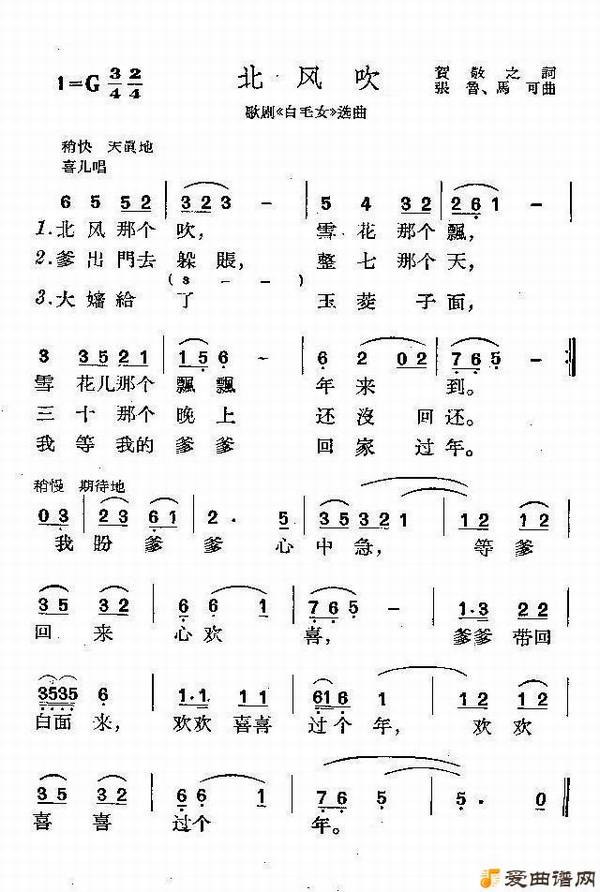 1=G 3/4 2/4 北风吹 賀敬之詞
張魯、馬可曲
歌剧《白毛女》选曲
稍快 天眞地
喜儿唱
6 5 5 5 2 | 3 2 3 – | 5 4 3 2 | 2 6 1 – |
1.北风那个吹, 雪花那个飄,
2.爹出門去躲賬, 整七那个天,
( 3 – – )
3.大嬸給了玉菱子面,
3 3 5 2 1 | 1 5 6 – | 6 2 0 2 | 7 6 5 – :||
雪花儿那个飄飄年来到。
三十那个晚上还沒回还。
我等我的爹爹回家过年。
稍慢 期待地
0 3 | 2 3 6 1 | 2 . 5 | 3 5 3 2 1 | 1 2 1 2 |
我盼爹爹心中急, 等爹
3 5 3 2 | 6 6 1 | 7 6 5 – | 1 . 3 2 2 |
回来心欢喜, 爹爹带回
3 5 3 5 6 | 1 . 1 1 1 | 6 1 5 3 | 1 2 1 2 |
白面来, 欢欢喜喜过个年, 欢欢
3 5 3 2 | 6 6 1 2 | 7 6 5 6 | 5 . 0 ||
喜喜过个年。
爱曲谱网